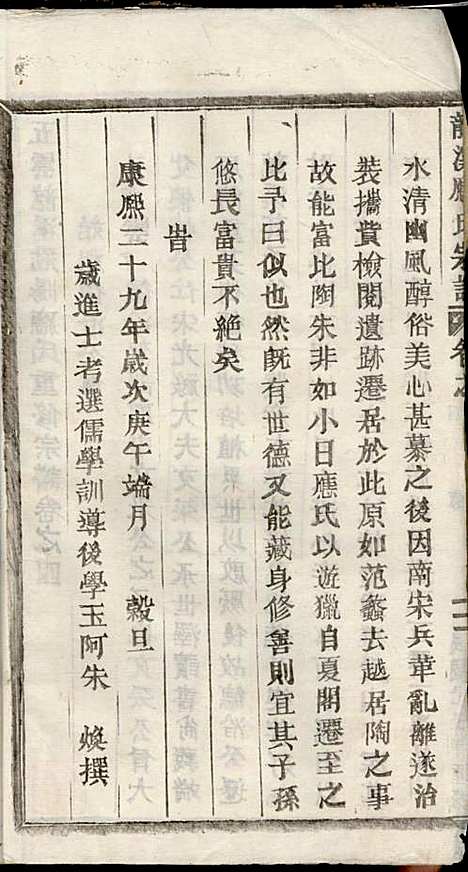 水清幽風醇俗美心甚慕之後因南宋兵革亂離遂治
裝攜費檢閱遺跡遷居於此原如范蠡去越居陶之事
故能富比陶朱非如小日應氏以遊獵自夏閣遷至之
比予曰似也然既有世德又能藏身修善則宜其子孫
悠長富貴不絕矣
旹
康熙二十九年歲次庚午端月 穀旦
歲進士考選儒學訓導後學玉阿朱 煥撰